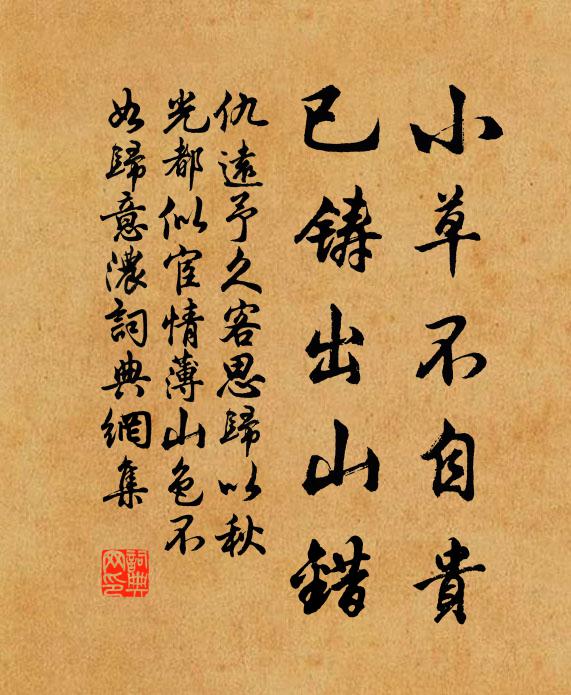 小草不自貴
已鑄出山錯
仇遠予久客思歸以秋
光都似宦情薄山色不
如歸意濃詞典網集
詞典网印